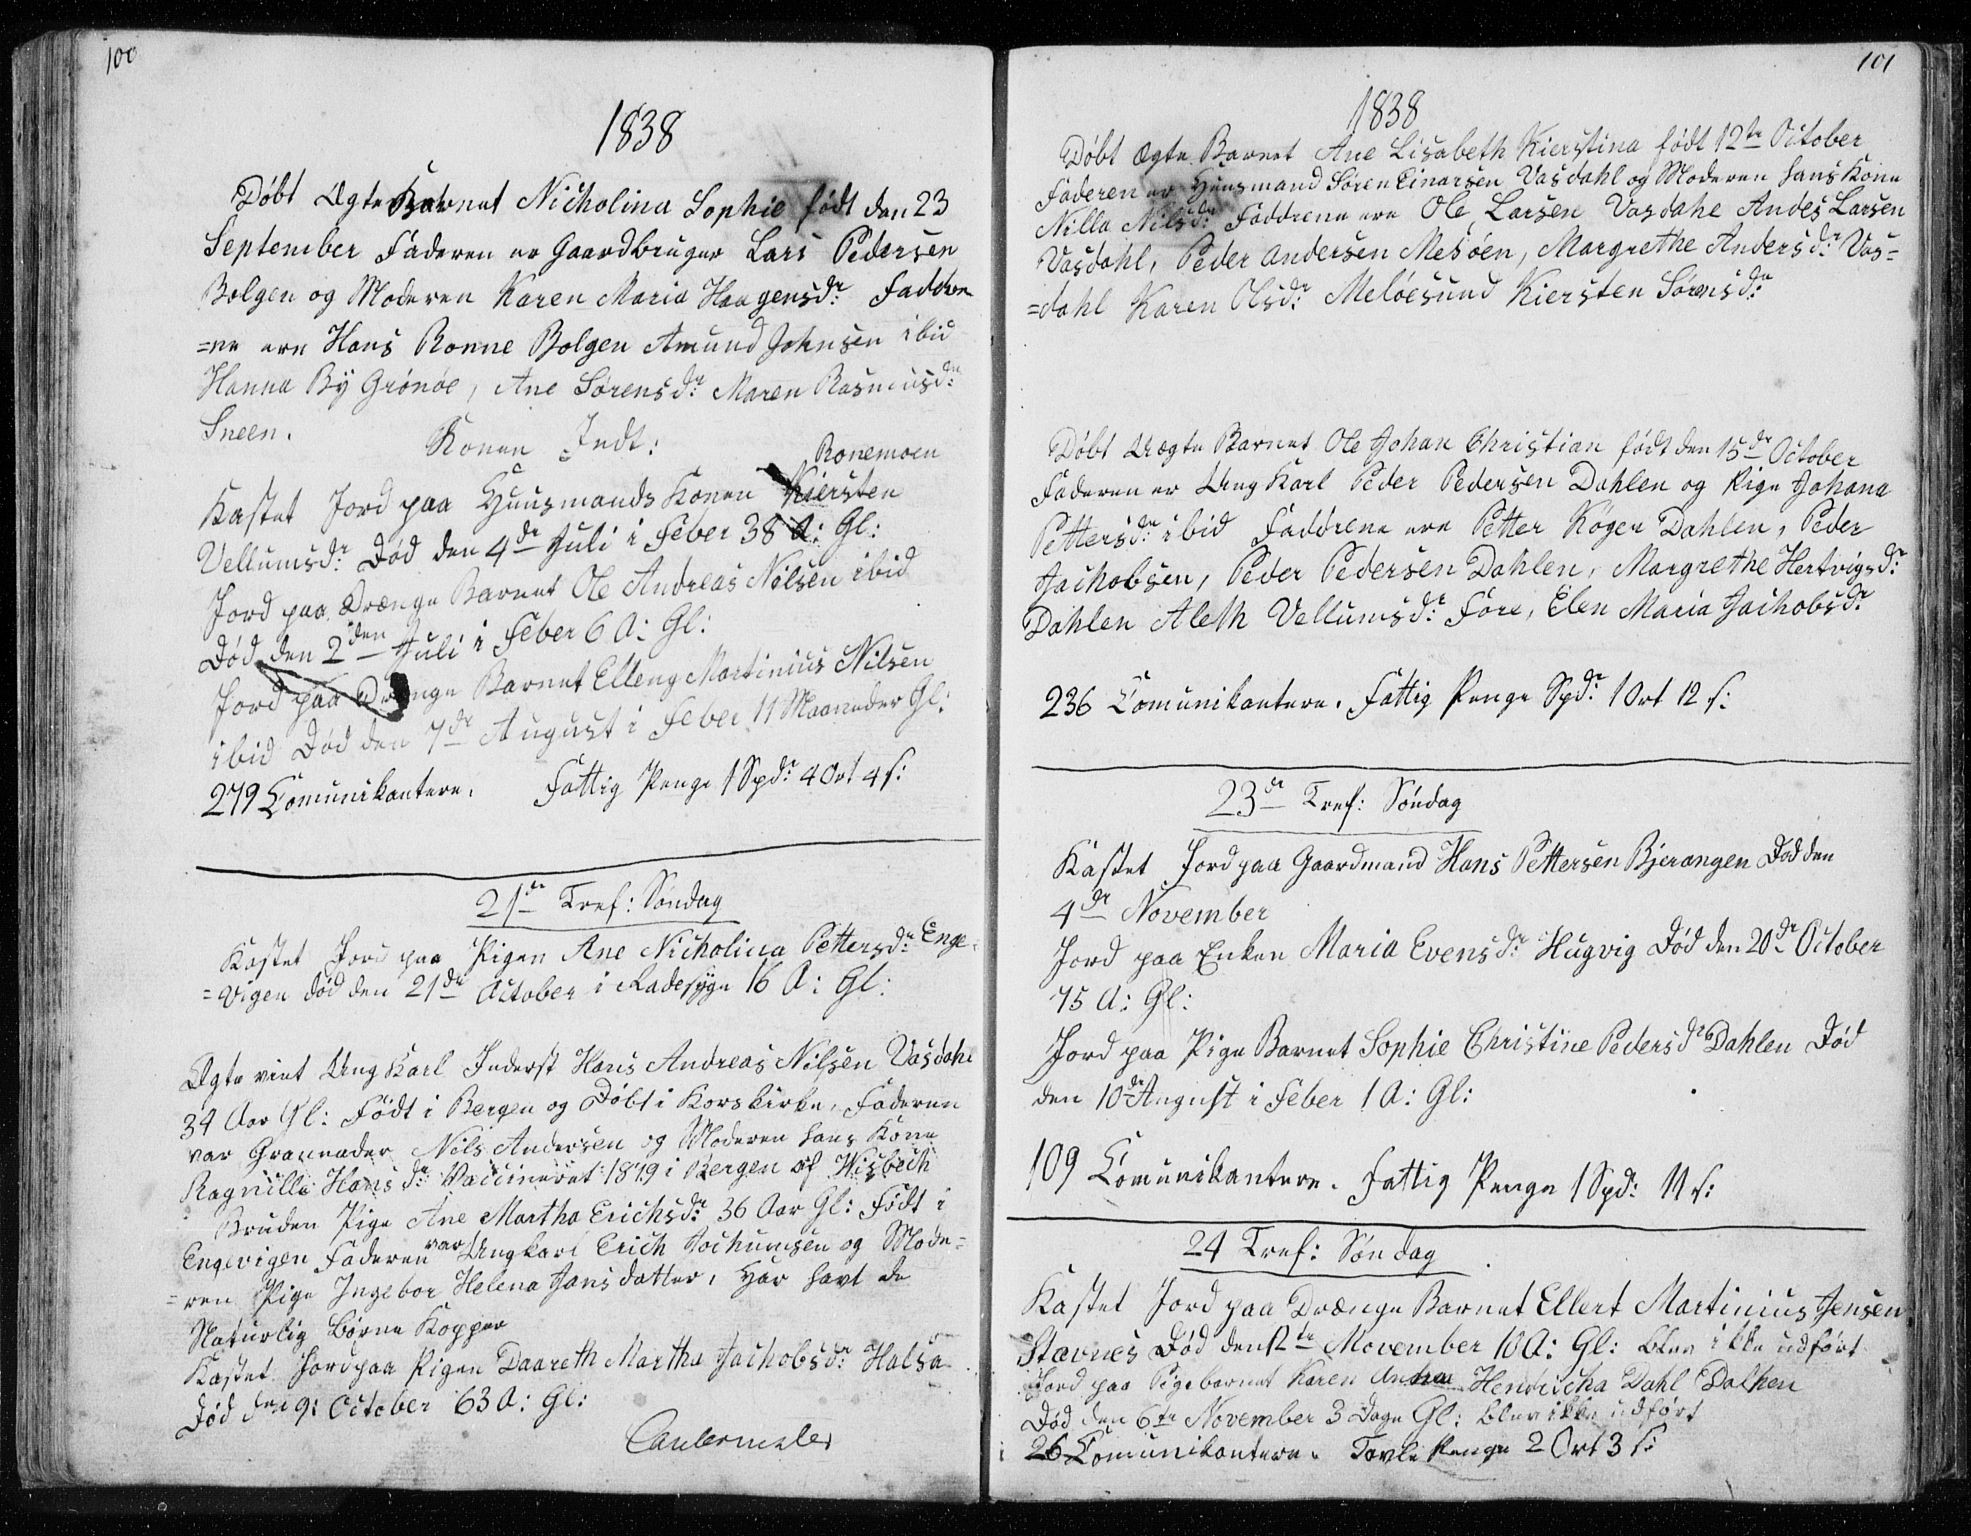 100
1838
Døbt Ægte Barnet Nicholina Sophie født den 23
September Faderen er Gaardbruger Lars Pedersen
Bolgen og Moderen Karen Maria Haagensdr: Faddre
=ne ere Hans Ronne Bolgen Amund Johnsen ibid
Hanna By Grönöe, Ane Sörensdr: Maren Rasmusdr:
Sneen.
Konen Indt:
Ronemoen
Kastet Jord paa Huusmands Konen Kiersten
Vellumsdr: Död den 4de Juli i Feber 38 A: Gl:
Jord paa Drænge Barnet Ole Andreas Nilsen ibid
Död den 2den Juli i Feber 6 A: Gl:
Jord paa Drænge Barnet Elleng Martinius Nilsen
ibid Död den 7de August i Feber 11 Maaneder Gl:
279 Comunikantere. Fattig Penge 1 Spdr: 4 Ort 4 s:
21de Tref: Söndag
Kastet Jord paa Pigen Ane Nicholina Pettersdr: Enge
=vigen död den 21de October i Radesyge 16 A: Gl:
Ægte viet Ung Karl Inderst Hans Andreas Nilsen Vasdahl
34 Aar Gl: Födt i Bergen og Döbt i Korskirke, Faderen
var Granneder Nils Andersen og Moderen hans Kone
Ragnille Hansdr: Vaccineret 1819 i Bergen af Wisbech
Bruden Pige Ane Martha Erichsdr: 36 Aar Gl: Födt i
Engevigen Faderen var Ungkarl Erich Jochumsen og Mode=
=ren Pige Ingebor Helena Jansdatter, Har havt de
Naturlig Börne Kopper
Kastet Jord paa Pigen Daareth Martha Jachobsdr: Halsa
död den 9: October 63 A: Gl:
101
1838
Döbt Ægte Barnet Ane Lisabeth Kierstina födt 12te October
Faderen er Huusmand Sören Einarsen Vasdahl og Moderen hans Kone
Nille Nilsdr: Faddrene ere Ole Larsen Vasdahl Andes Larsen
Vasdahl, Peder Andersen Mesöen, Margrethe Andersdr: Vas=
=dahl Karen Olsdr: Melöesund Kiersten Sörensdr:
Döbt Uægte Barnet Ole Johan Christian födt den 15de October
Faderen er Ung Karl Peder Pedersen Dahlen og Pige Johana
Pettersdr: ibid Faddrene ere Petter Kögen Dahlen, Peder
Jachobsen, Peder Pedersen Dahlen, Margrethe Hertvigsdr:
Dahlen Aleth Vellumsdr: Före, Elen Maria Jachobsdr
236 Comunikantere. Fattig Penge Spdr: 1 Ort 12 s:
23de Tref: Söndag
Kastet Jord paa Gaardmand Hans Pettersen Bjerangen Död den
4de November
Jord paa Enken Maria Evensdr: Hugvig Död den 20de October
75 A: Gl:
Jord paa Pige Barnet Sophie Christine Pedersdr Dahlen Död
den 10de August i Feber 1 A: Gl:
109 Comunikantere. Fattig Penge 1 Spd: 11 s:
24 Tref: Söndag
Kastet Jord paa Drænge Barnet Ellert Martinius Jensen
Stavnes Död den 12te November 10 A: Gl: blev ikke udfört
Jord paa Pigebarnet Karen Andrea Hendricka Dahl Dalhen
Död den 6te November 3 Dage Gl: blev ikke udfört
26 Comunikantere. Tavle Penge 2 Ort 3 s: